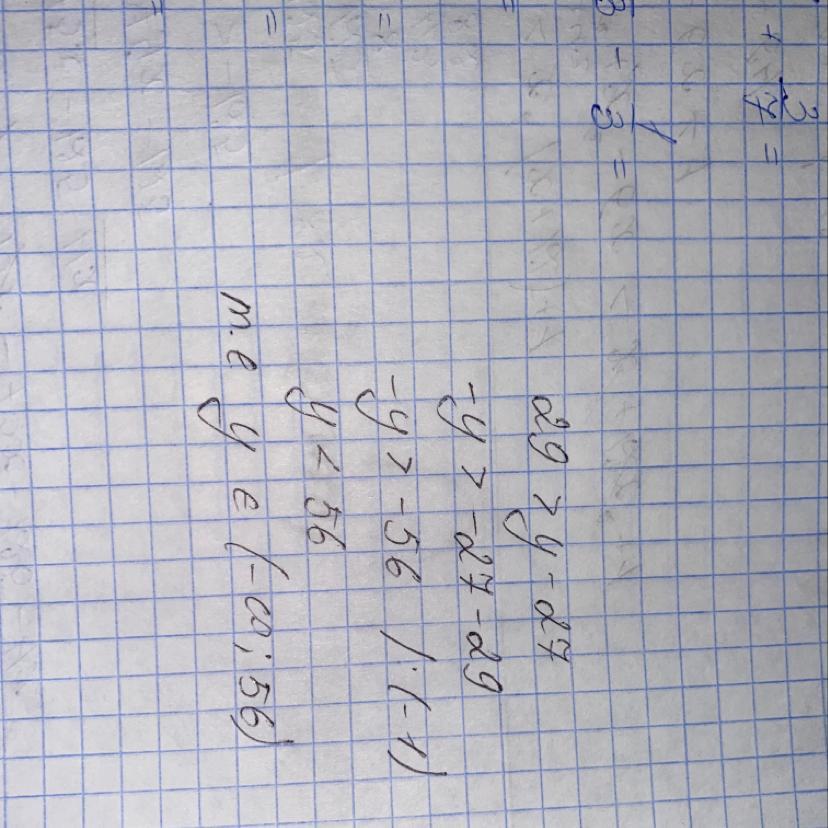 + 3/7 =
3 - 1/3 =
=
=
=
=
29 > y - 27
-y > -27 - 29
-y > -56 /·(-1)
y < 56
т.е y ∈ (-∞; 56)